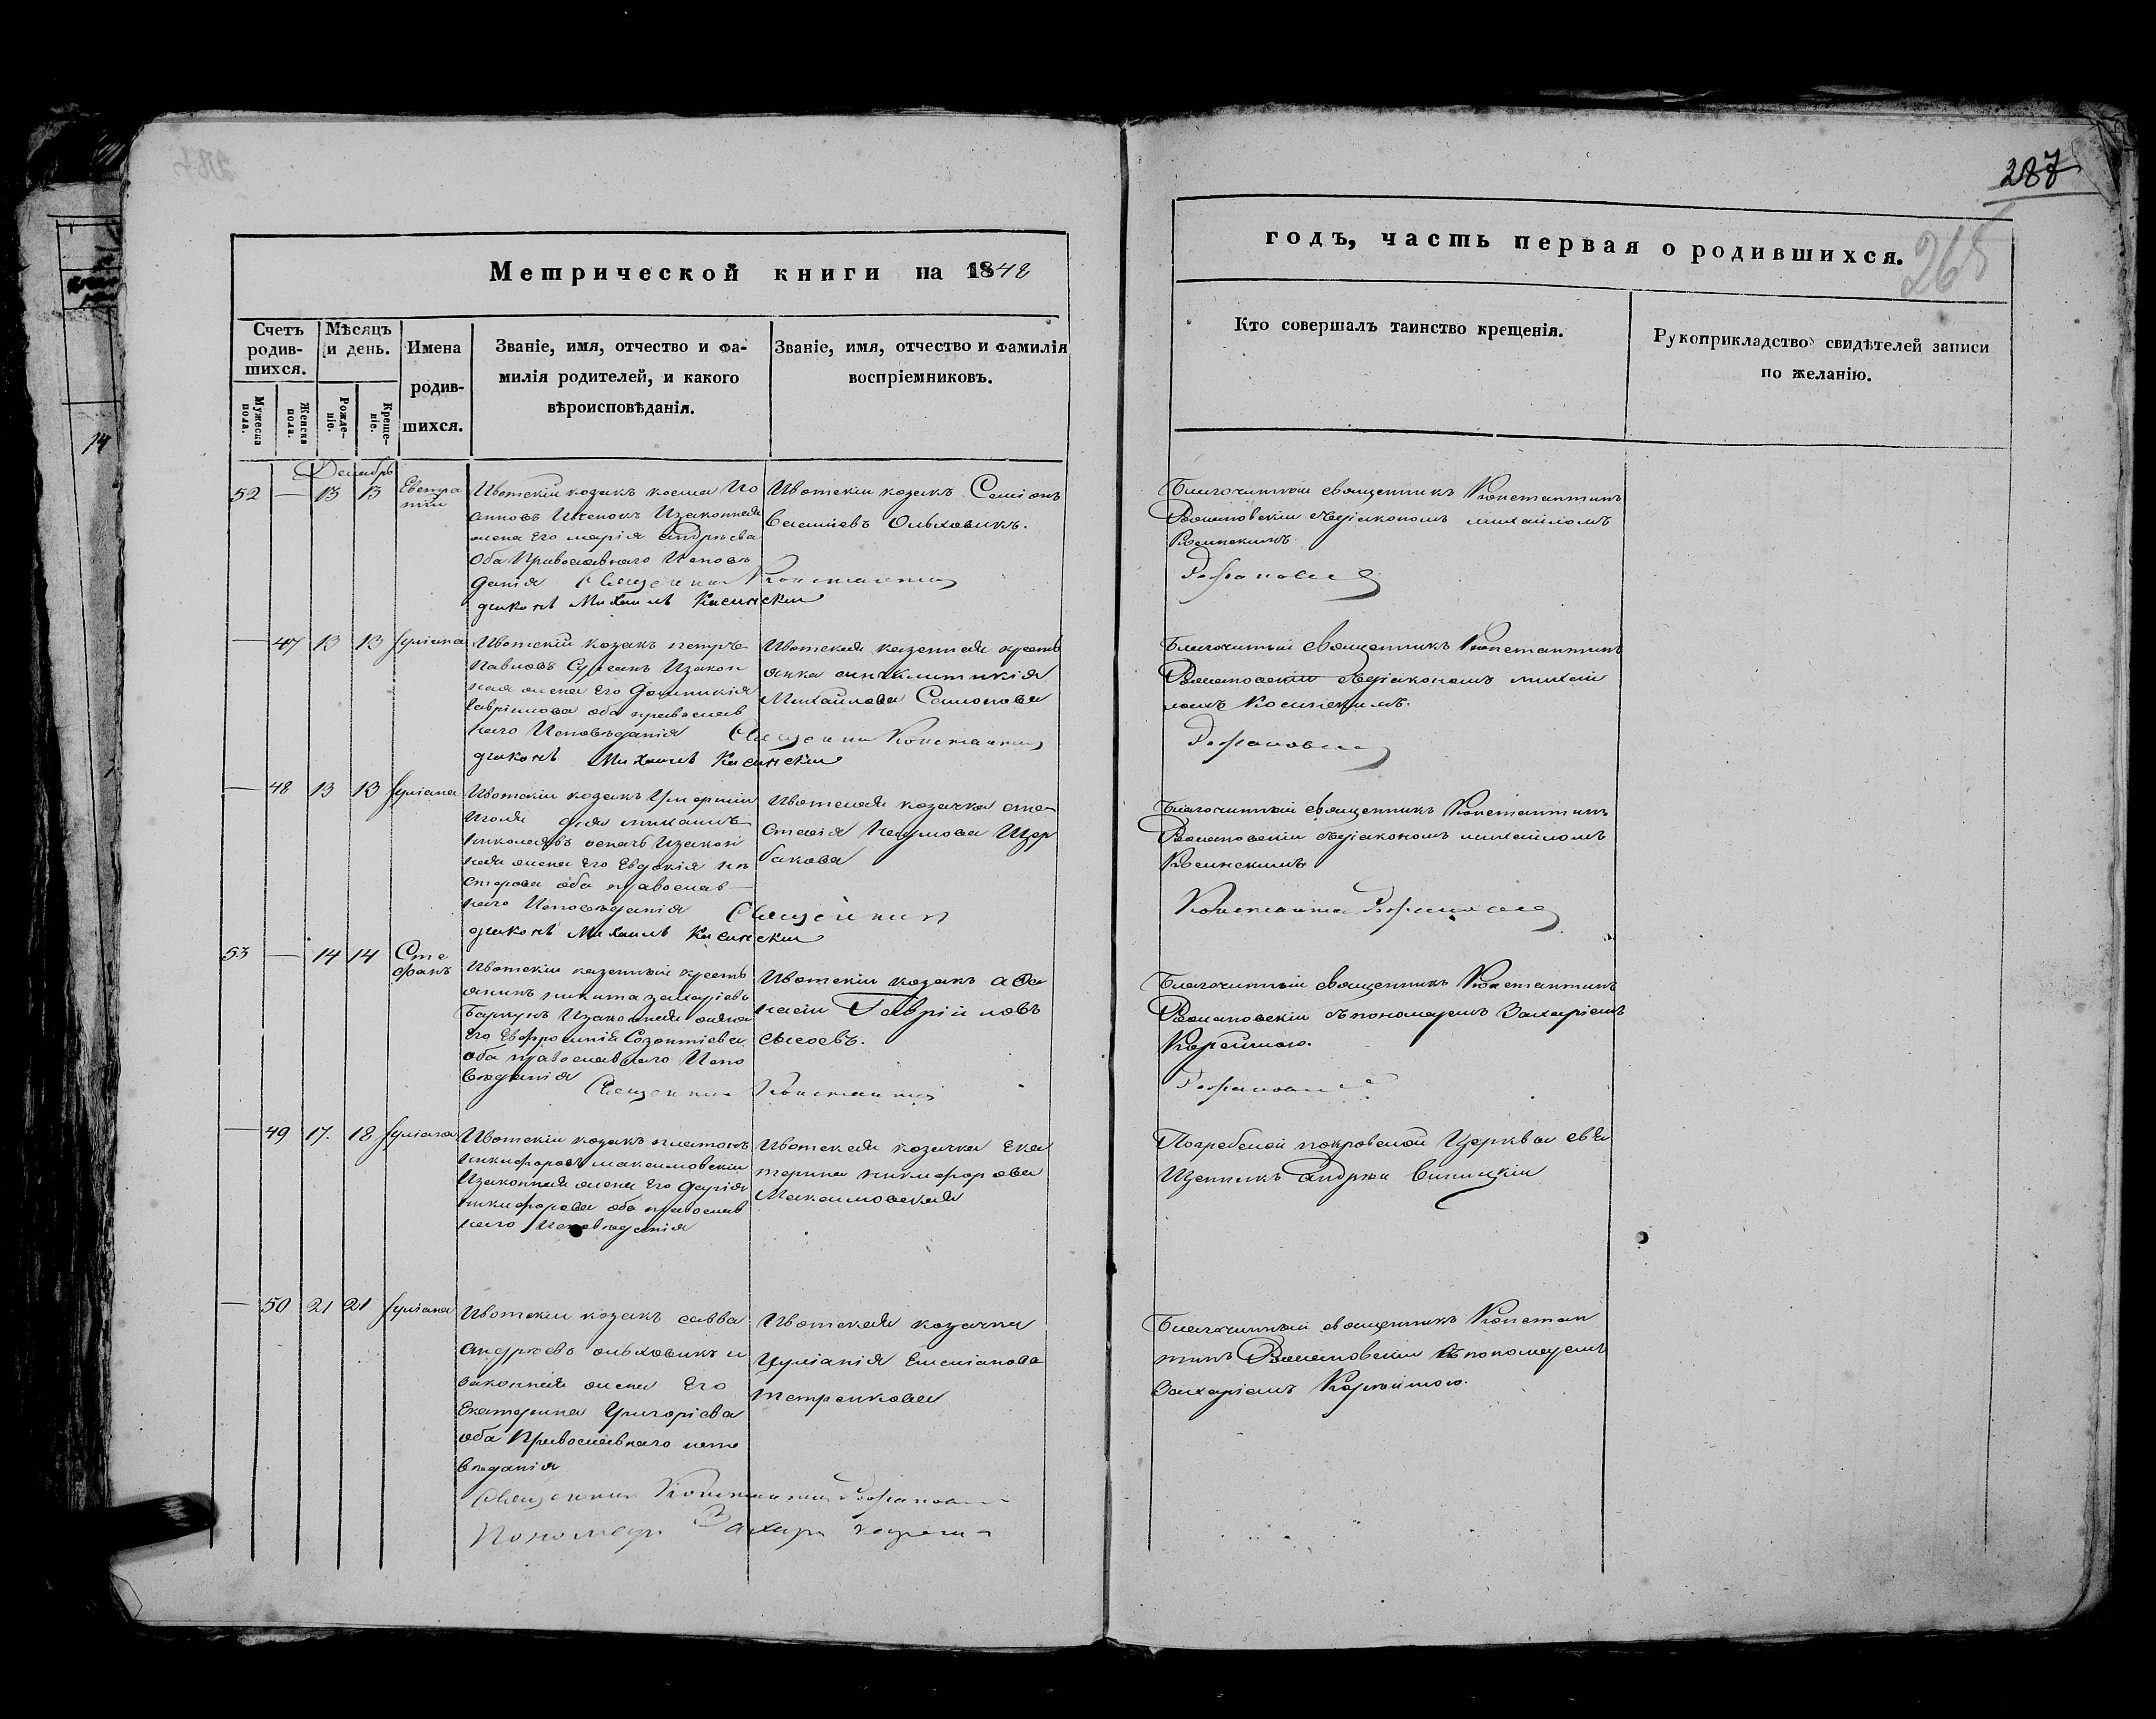 287
265
Метрической книги на 1848
годъ, часть первая о родившихся.
Счетъ родив-шихся.
Мѣсяцъ и день.
Имена родив-шихся.
Званіе, имя, отчество и фа-
милія родителей, и какого
вѣроисповѣданія.
Званіе, имя, отчество и фамилія
воспріемниковъ.
Кто совершалъ таинство крещенія.
Рукоприкладство свидѣтелей записи
по желанію.
Мужеска пола.
Женска пола.
Рожде-ніе.
Креще-ніе.
Декабрь
52 — 13 13 Евстра
тій
Ивотскій козакъ косма Іо
анновъ Изаконная
жена Его марія андрѣева
Оба Православнаго Исповѣ
данія Священникъ Константинъ
диконъ Михаилъ Косинскій
Ивотскій козакъ Семіонъ
Ольховикъ.
Благочинный священникъ Константинъ
Романовскій сдіакономъ михайломъ
Косинскимъ
Романовскій
— 47 13 13 Іуліана
Ивотскій козакъ петръ
Павловъ Изакон
ная жена Его Домникія
Гавріилова оба православ
наго Исповѣданія Священникъ Константинъ
диконъ Михаилъ Косинскій
Ивотская казенная кресть
янка синклитикія
Михайлова Самонова
Благочинный священникъ Константинъ
Романовскій сдіакономъ михай
ломъ Косинскимъ.
Романовскій
— 48 13 13 Іуліана
Ивотскій козакъ
михаилъ
николаевъ Изакон
ная жена Его Евдокія не
стерова оба православ
наго Исповѣданія Священникъ
диконъ Михаилъ Косинскій
Ивотская козачка ана
стасія Наумова Щер
бакова
Благочинный священникъ Константинъ
Романовскій сдіакономъ михайломъ
Косинскимъ
Константинъ Романовскій
53 — 14 14 Сте
фанъ
Ивотскій казенный кресть
янинъ никита захаріевъ
Изаконная жена
Его Евфросинія Созонтіева
оба православнаго Испо
вѣданія Священникъ Константинъ
Ивотскій козакъ афа
насій Гавріиловъ
сысоевъ.
Благочинный священникъ Константинъ
Романовскій спономаремъ Захаріемъ
Романовскій
— 49 17. 18 Іуліана
Ивотскій козакъ платонъ
никифоровъ максимовскій
Изаконная жена Его Дарія
никифорова оба православ
наго Исповѣданія
Ивотская козачка Ека
терина никифорова
Максимовская
Погребской покровской Церкви свя
щенникъ Андрей
— 50 21 21 Іуліана
Ивотскій козакъ савва
Андрѣевъ ольховикъ и
законная жена Его
Екатерина Григоріева
оба Православнаго испо
вѣданія
Священникъ Константинъ Романовскій
Пономарь Захарій
Ивотская козачка
Іуліанія Емеліанова
Петренкова
Благочинный священникъ Констан
тинъ Романовскій спономаремъ
Захаріемъ
14